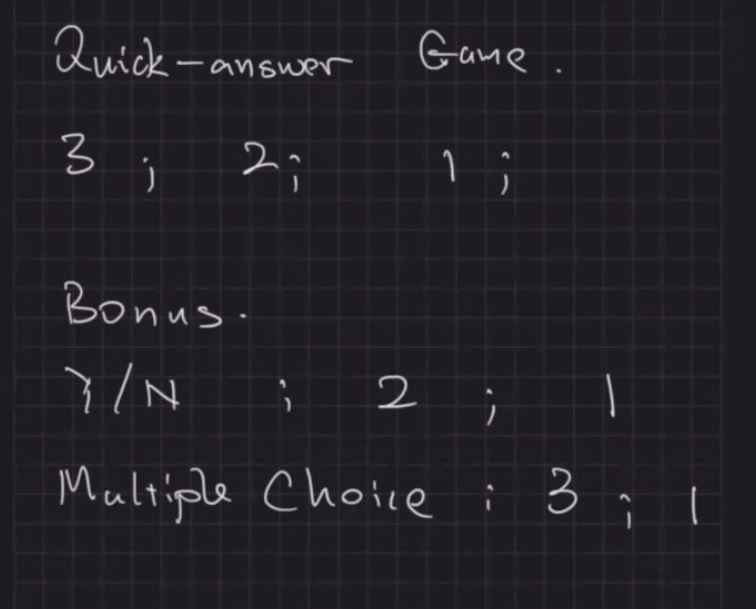 Quick-answer Game.
3 ; 2; 1 ;
Bonus.
Y/N ; 2 ; 1
Multiple Choice ; 3 ; 1